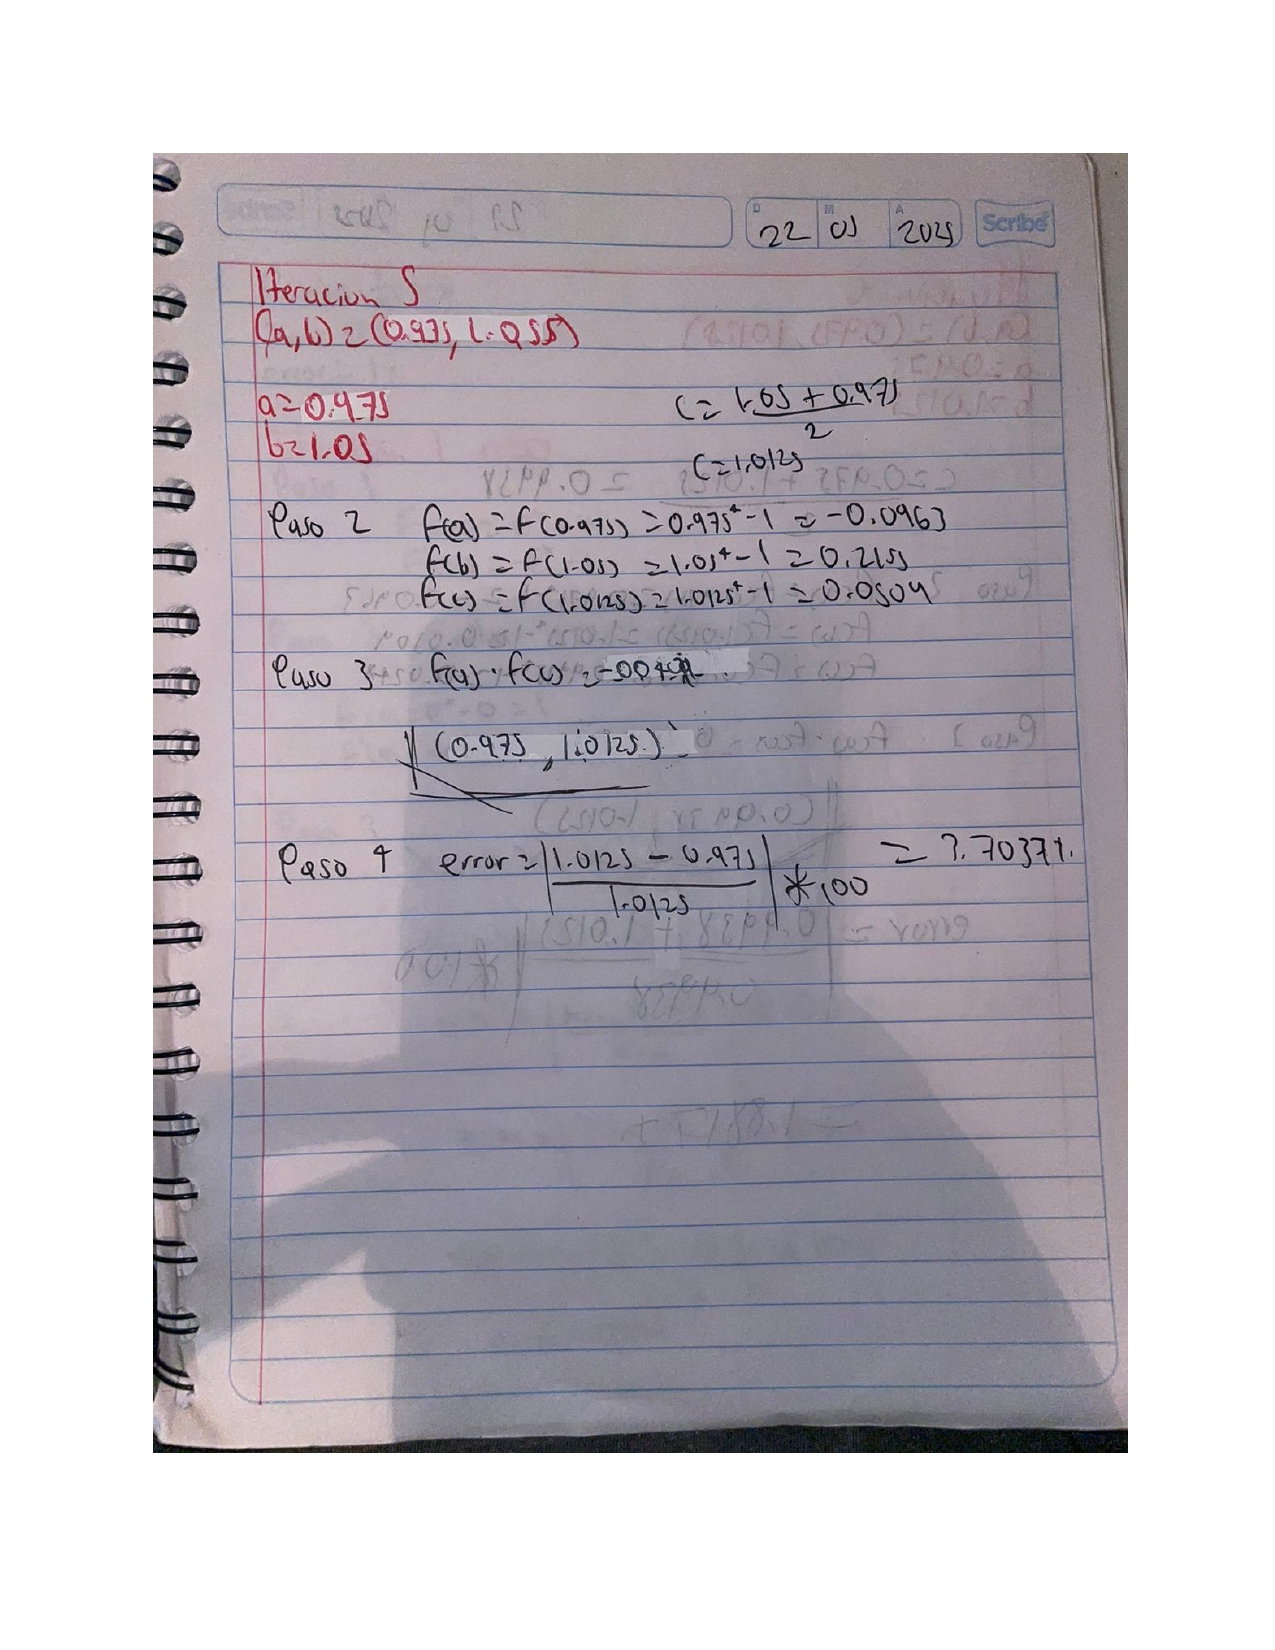 22 05 2025 Scribe
Iteracion 5
(a,b) = (0.975, 1.055)
a=0.975
b=1.05
c= 1.05 + 0.975
2
c=1.0125
Paso 2 f(a) = f(0.975) = 0.975⁴-1 = -0.0963
f(b) = f(1.05) = 1.05⁴-1 = 0.2155
f(c) = f(1.0125) = 1.0125⁴-1 = 0.0509
Paso 3 f(a) · f(c) =
(0.975, 1.0125)
Paso 4 error = |1.0125 - 0.975| = 3.7037%
1.0125 *100